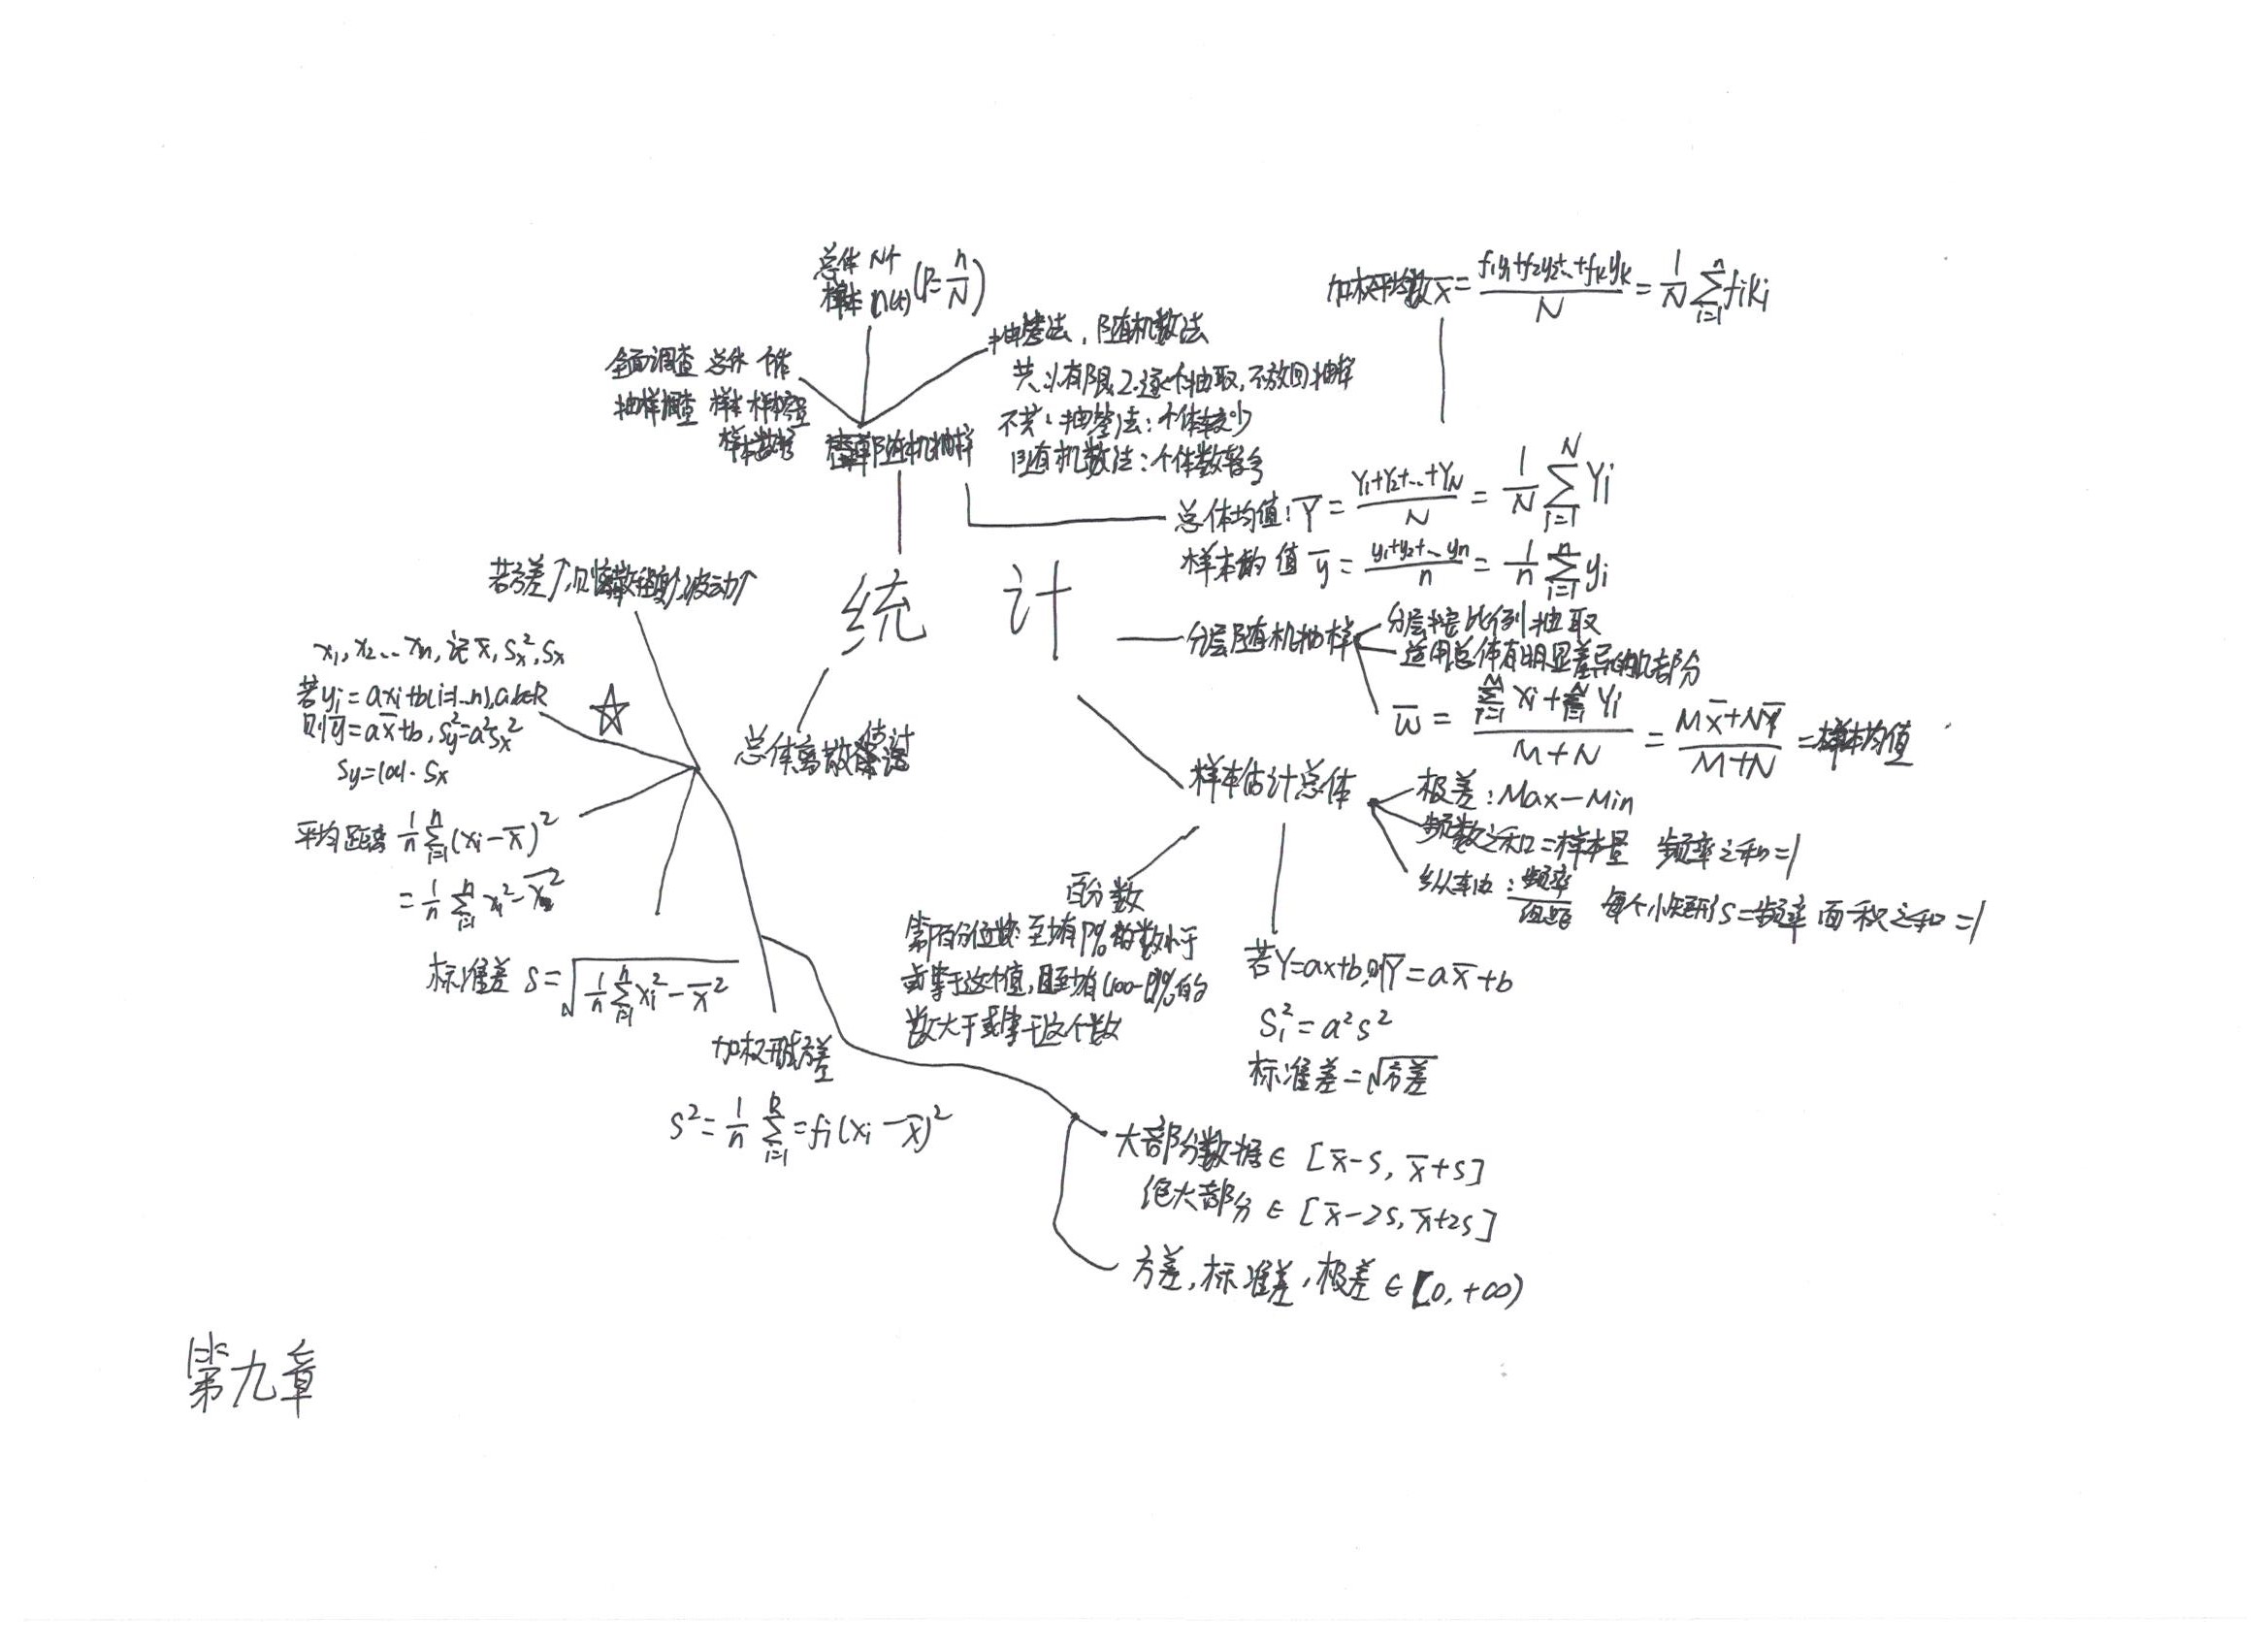 总体 N个
样本 n(个) (P=n/N)
加权平均数 x̄ = (f₁y₁+f₂y₂+…+fₖyₖ)/N = 1/N ∑_{i=1}^{n} fᵢkᵢ
抽签法，随机数法
共 1.有限 2.逐个抽取，不放回抽样
不共：抽签法：个体较少
随机数法：个体数较多
全面调查 总体 个体
抽样调查 样本 样本容量
样本数据
简单随机抽样
总体均值：Ȳ = (Y₁+Y₂+…+Y_N)/N = 1/N ∑_{i=1}^{N} Yᵢ
样本均值 ȳ = (y₁+y₂+…yₙ)/n = 1/n ∑_{i=1}^{n} yᵢ
统 计
分层随机抽样
分层按比例抽取
适用总体有明显差异的几部分
w̄ = (∑_{i=1}^{M} Xᵢ + ∑_{i=1}^{N} Yᵢ)/(M+N) = (MX̄+NȲ)/(M+N) = 样本均值
若方差↑，则离散程度↑，波动↑
x₁, x₂…xₙ, 记 x̄, Sx², Sx
若yᵢ=axᵢ+b(i=1…n), a,b∈R
则ȳ=ax̄+b, Sy²=a²Sx²
Sy=|a|·Sx
平均距离 1/n ∑_{i=1}^{n} (xᵢ-x̄)²
= 1/n ∑_{i=1}^{n} xᵢ² - x̄²
标准差 S=√(1/n ∑_{i=1}^{n} xᵢ² - x̄²)
总体离散估计
加权形式方差
S²= 1/n ∑_{i=1}^{k} = fᵢ(xᵢ-x̄)²
样本估计总体
极差：Max-Min
频数之和=样本量 频率之和=1
纵轴：频率/组距 每个小矩形S=频率 面积之和=1
百分数
第P百分位数：至少有P%的数小于
或等于这个值，且至少有(100-P)%的
数大于或等于这个数
若Y=ax+b, 则Ȳ=ax̄+b
S₁²=a²s²
标准差=√方差
大部分数据∈[x̄-S, x̄+S]
绝大部分∈[x̄-2S, x̄+2S]
方差，标准差，极差∈[0, +∞)
第九章